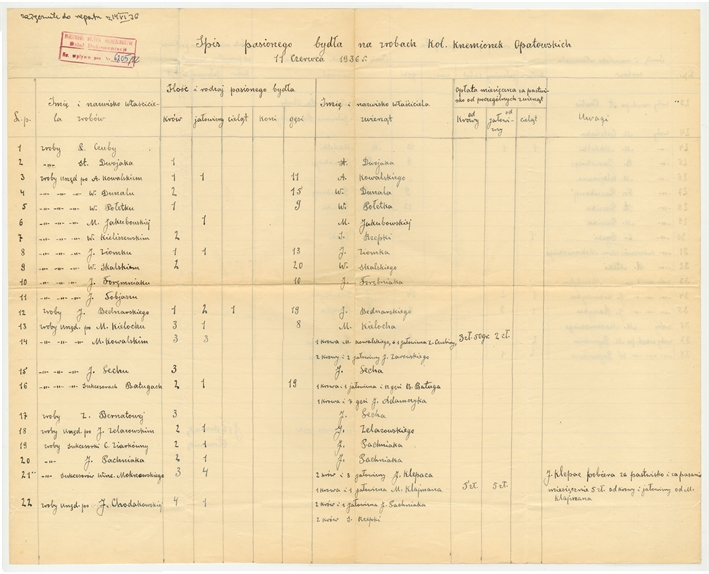 Spis pasionego bydła na zrobach Kol. Krzemionek Opatowskich
11 Czerwca 1936 r.
L.p. Imię i nazwisko właściciela zrobów
Ilość i rodzaj pasionego bydła
krów jałowiny cieląt koni gęsi
Imię i nazwisko właściciela zwierząt
Opłata miesięczna za pastwisko od poszczególnych zwierząt
od krowy od jałowizny cieląt
Uwagi
1 zroby
2 -"- St. Dwojaka 1 St. Dwojaka
3 zroby Urzęd. po A. Kowalskim 1 1 11 A. Kowalskiego
4 -"- -"- -"- W. Dunalu 2 15 W. Dunala
5 -"- -"- -"- W. Połetku 1 9 W. Połetka
6 -"- -"- -"- M. Jakubowskiej 1 M. Jakubowskiej
7 -"- -"- -"- W. Kieliszewskim 2 Rzepki
8 -"- -"- -"- J. Ziomku 1 1 13 J. Ziomka
9 -"- -"- -"- W. Skalskim 2 20 W. Skalskiego
10 -"- -"- -"- J. Foremniaku 16 J. Foremniaka
11 -"- -"- -"- J.
12 zroby J. Bednarskiego 1 2 1 19 J. Bednarskiego
13 zroby Urzęd. po M. Kielochu 3 1 8 M. Kielocha
14 -"- -"- -"- M. Kowalskim 3 3 1 krowa M. Kowalskiego, a 1 jałowina 3 zł. 50 gr. 2 zł.
2 krowy i 2 jałowiny J.
15 -"- -"- J. Sechu 3 J. Secha
16 -"- -"- Sukcesorach Baługach 2 1 19 1 krowa, 1 jałowina i 12 gęsi B. Baługa
1 krowa i 7 gęsi J. Adamczyka
17 zroby Z. Bernatowej 3 J. Secha
18 zroby Urzęd. po J. Żelazowskim 2 1 J. Żelazowskiego
19 zroby sukcesorki C. Ziarkówny 2 1 J. Pachniaka
20 -"- J. Pachniaka 2 1 J. Pachniaka
21 -"- sukcesorów Winc. Mokrzewskiego 3 4 2 krów i 3 jałowiny J. Klepacz
1 krowa i 1 jałowina M. Klajmana 5 zł. 5 zł.
J. Klepacz pobiera za pastwisko i za pasze miesięcznie 5 zł. od krowy i jałowiny od M. Klajmana
22 zroby Urzęd. po J. Chodakowskiej 4 1 2 krów i 1 jałowina J. Pachniaka
2 krów Rzepki